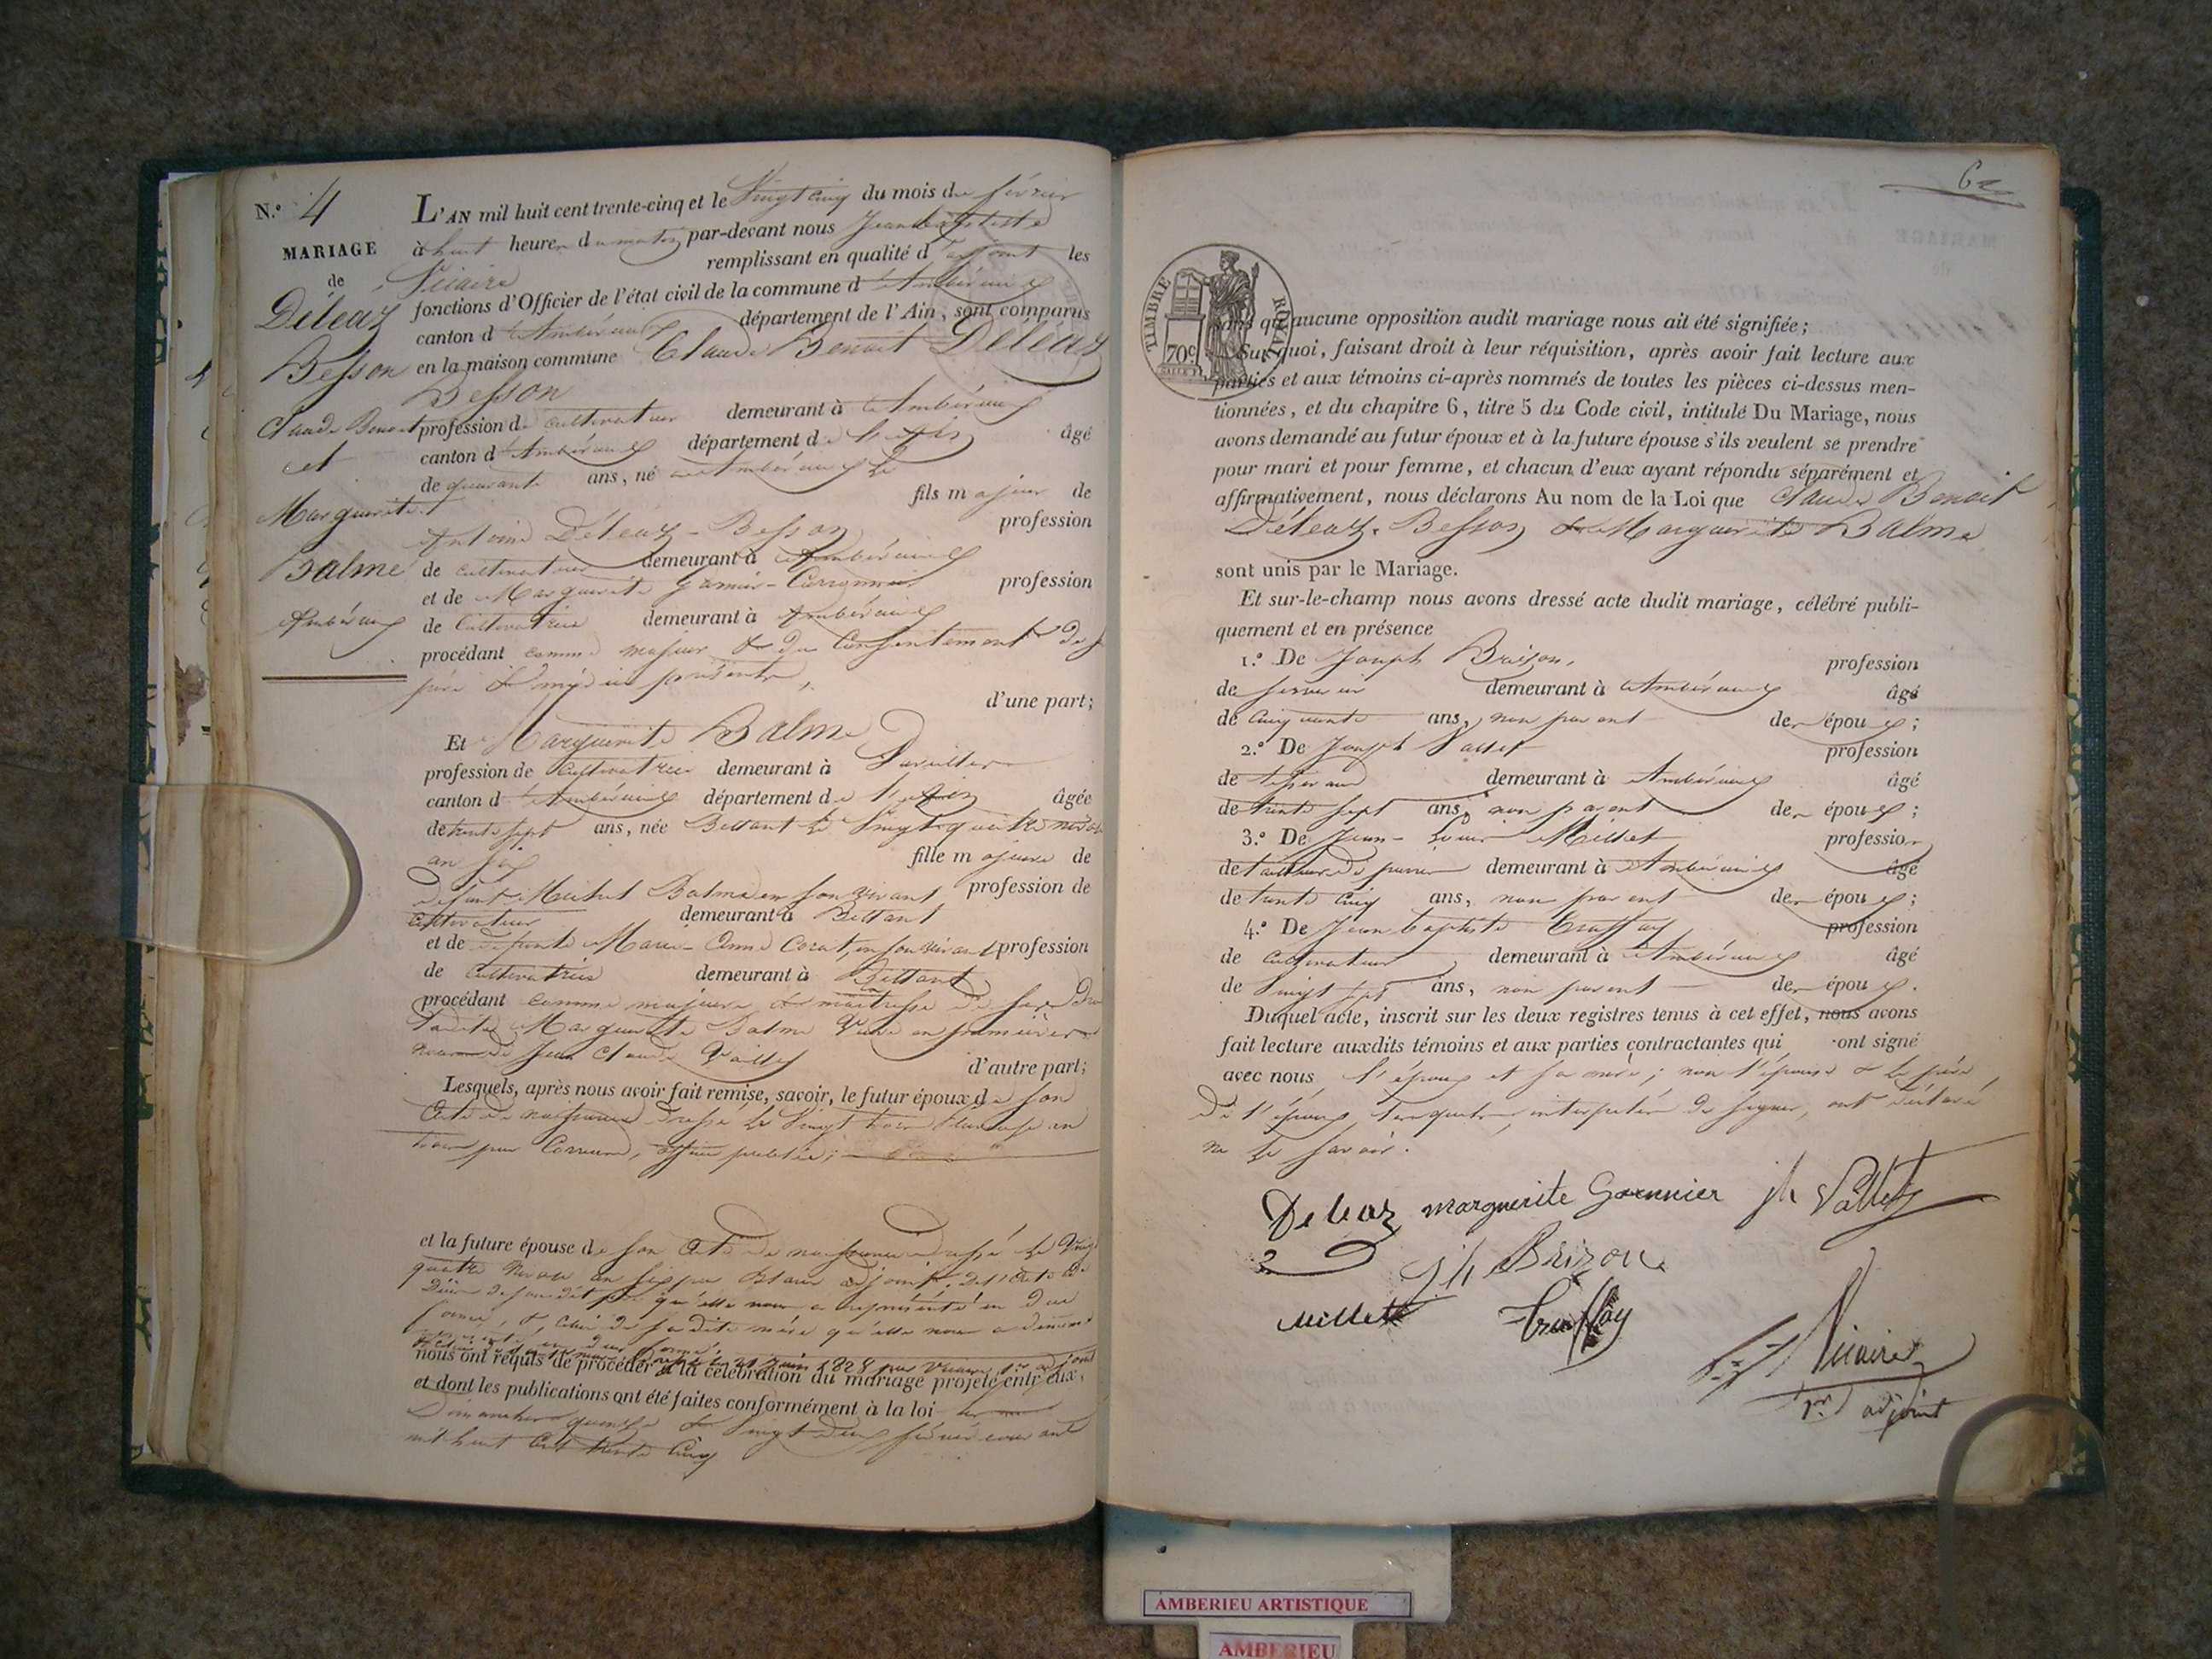 N.º 4
MARIAGE
de
Déléaz
Besson
Claude Benoit
et
Marguerite
Balme
Ambérieux
L'AN mil huit cent trente-cinq et le Vingt cinq du mois de février
à huit heures du matin par-devant nous Jean baptiste
Vicaire remplissant en qualité d'adjoint les
fonctions d'Officier de l'état civil de la commune d'Ambérieux
canton d'Ambérieux département de l'Ain, sont comparus
en la maison commune Claude Benoit Déléaz
Besson
profession de cultivateur demeurant à Ambérieux
canton d'Ambérieux département de l'Ain âgé
de quarante ans, né à Ambérieux le
fils majeur de
Antoine Déléaz-Besson profession
de cultivateur demeurant à Ambérieux
et de Marguerite profession
de Cultivatrice demeurant à Ambérieux
procédant comme majeur & du Consentement de ses
père & mère ici présents,
d'une part;
Et Marguerite Balme
profession de Cultivatrice demeurant à
canton d'Ambérieux département de l'Ain âgée
de trente sept ans, née Bettant le Vingt quatre nivose
an six fille majeure de
défunt Michel Balme en son vivant profession de
cultivateur demeurant à Bettant
et de défunte Marie-Anne en son vivant profession
de Cultivatrice demeurant à Bettant
procédant comme majeure & maitresse de ses droits
Ladite Marguerite Balme Veuve en premières
noces de Jean Claude
d'autre part;
Lesquels, après nous avoir fait remise, savoir, le futur époux de son
Acte de naissance dressé le Vingt trois pluviose an
trois par officier public;
et la future épouse de son Acte de naissance dressé le Vingt
quatre Nivose an six par adjoint, de l'acte de
Décès de son dit père qu'elle nous a représenté en due
forme, & celui de sa dite mère qu'elle nous a
juin 1828 par Vicaire 1er adjoint
nous ont requis de procéder à la célébration du mariage projeté entr'eux,
et dont les publications ont été faites conformément à la loi les
Dimanches quinze & Vingt deux février courant
mil huit Cent trente Cinq
62
TIMBRE ROYAL
70c
sans qu'aucune opposition audit mariage nous ait été signifiée;
Sur quoi, faisant droit à leur réquisition, après avoir fait lecture aux
parties et aux témoins ci-après nommés de toutes les pièces ci-dessus men-
tionnées, et du chapitre 6, titre 5 du Code civil, intitulé Du Mariage, nous
avons demandé au futur époux et à la future épouse s'ils veulent se prendre
pour mari et pour femme, et chacun d'eux ayant répondu séparément et
affirmativement, nous déclarons Au nom de la Loi que Claude Benoit
Déléaz-Besson & Marguerite Balme
sont unis par le Mariage.
Et sur-le-champ nous avons dressé acte dudit mariage, célébré publi-
quement et en présence
1.º De Joseph Brizon, profession
de serrurier demeurant à Ambérieux âgé
de Cinquante ans, non parent des époux;
2.º De Joseph Vallet profession
de tisserand demeurant à Ambérieux âgé
de trente sept ans, non parent des époux;
3.º De Jean-Louis Millet profession
de tailleur de pierres demeurant à Ambérieux âgé
de trente cinq ans, non parent des époux;
4.º De Jean baptiste Truffay profession
de cultivateur demeurant à Ambérieux âgé
de Vingt sept ans, non parent des époux.
Duquel acte, inscrit sur les deux registres tenus à cet effet, nous avons
fait lecture auxdits témoins et aux parties contractantes qui ont signé
avec nous l'époux et sa mère; non l'épouse & le père
de l'époux lesquels, interpelés de signer, ont déclaré
ne le savoir.
Deleaz marguerite Garnnier jh Vallet
Jh Brizon
Millet Truffay
Vicaire
1er adjoint
AMBERIEU ARTISTIQUE
AMBERIEU